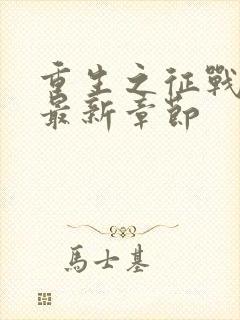 重生之征戰
最新章節
馬士基